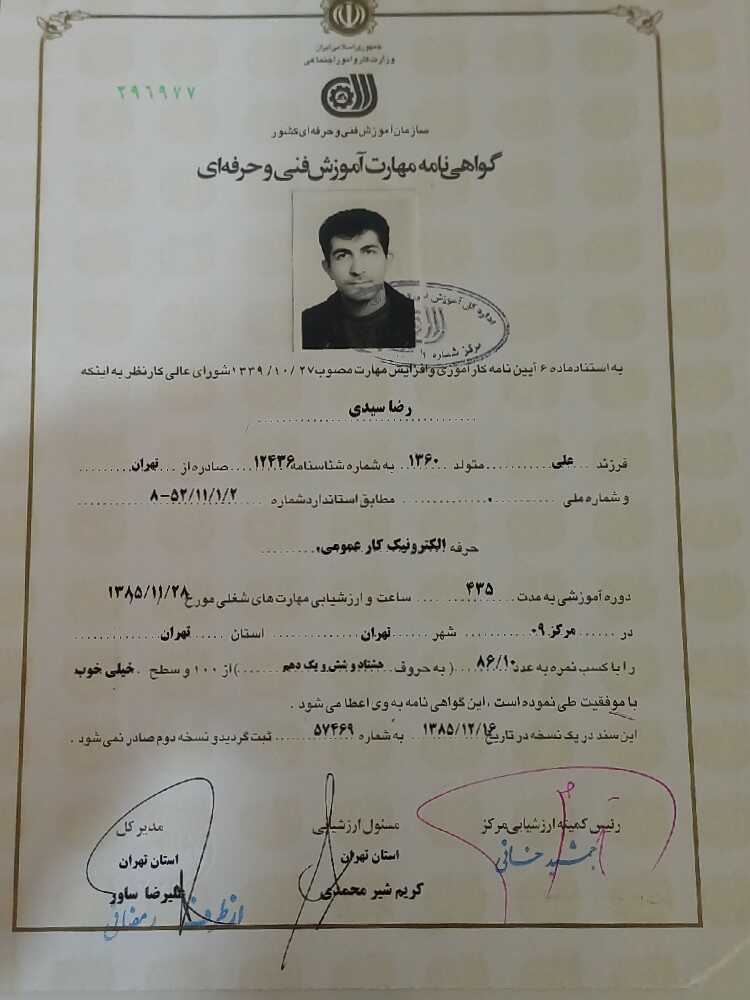 جمهوری اسلامی ایران
وزارت کار و امور اجتماعی
۲۹۶۹۷۷
سازمان آموزش فنی و حرفه‌ای کشور
گواهی‌نامه مهارت آموزش فنی و حرفه‌ای
اداره کل آموزش
مرکز شماره
به استناد ماده ۶ آیین نامه کارآموزی و افزایش مهارت مصوب ۲۷ /۱۰ /۱۳۳۹ شورای عالی کار نظر به اینکه
رضا سیدی
فرزند علی متولد ۱۳۶۰ به شماره شناسنامه ۱۲۴۳۶ صادره از تهران
و شماره ملی ۰ مطابق استاندارد شماره ۸-۵۲/۱۱/۱/۲
حرفه الکترونیک کار عمومی
دوره آموزشی به مدت ۴۳۵ ساعت و ارزشیابی مهارت های شغلی مورخ ۱۳۸۵/۱۱/۲۸
در مرکز ۰۹ شهر تهران استان تهران
را با کسب نمره به عدد ۸۶/۱۰ ( به حروف هشتاد و شش و یک دهم ) از ۱۰۰ و سطح خیلی خوب
با موفقیت طی نموده است ، این گواهی نامه به وی اعطا می شود .
این سند در یک نسخه در تاریخ ۱۳۸۵/۱۲/۱۶ به شماره ۵۷۴۶۹ ثبت گردید و نسخه دوم صادر نمی شود .
رئیس کمیته ارزشیابی مرکز
جمشید خانی
مسئول ارزشیابی
استان تهران
کریم شیر محمدی
مدیر کل
استان تهران
علیرضا ساور
از طرف رمضانی